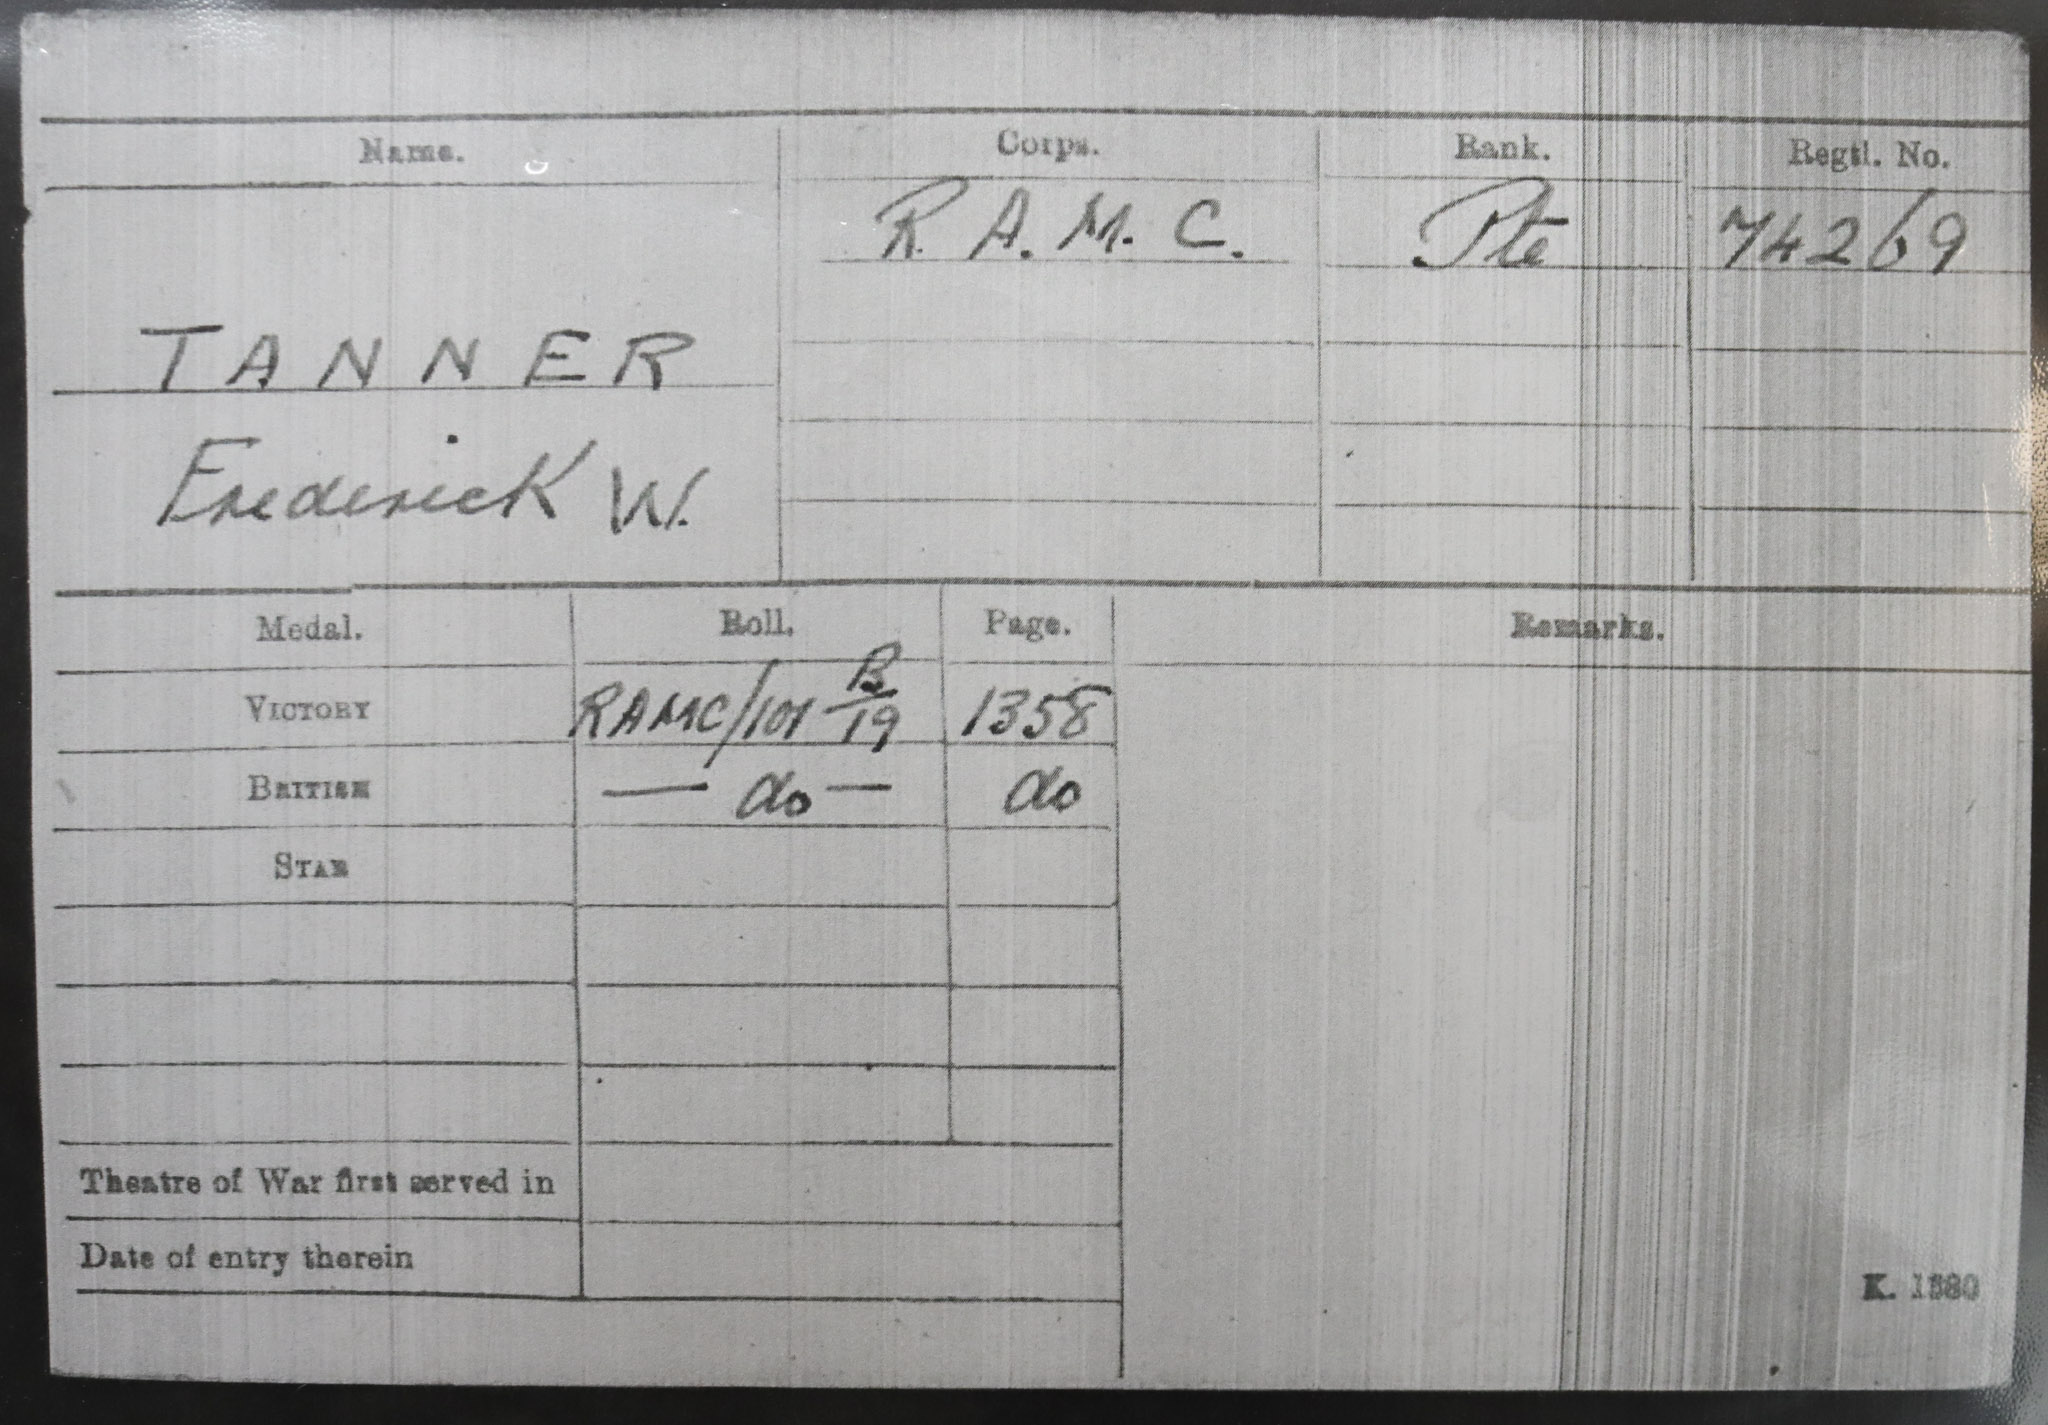 Name. Corps. Rank. Regtl. No.
R. A. M. C. Pte 74269
TANNER
Frederick W.
Medal. Roll. Page. Remarks.
VICTORY RAMC/101 B/19 1358
BRITISH — do — do
STAR
Theatre of War first served in
Date of entry therein
K. 1380